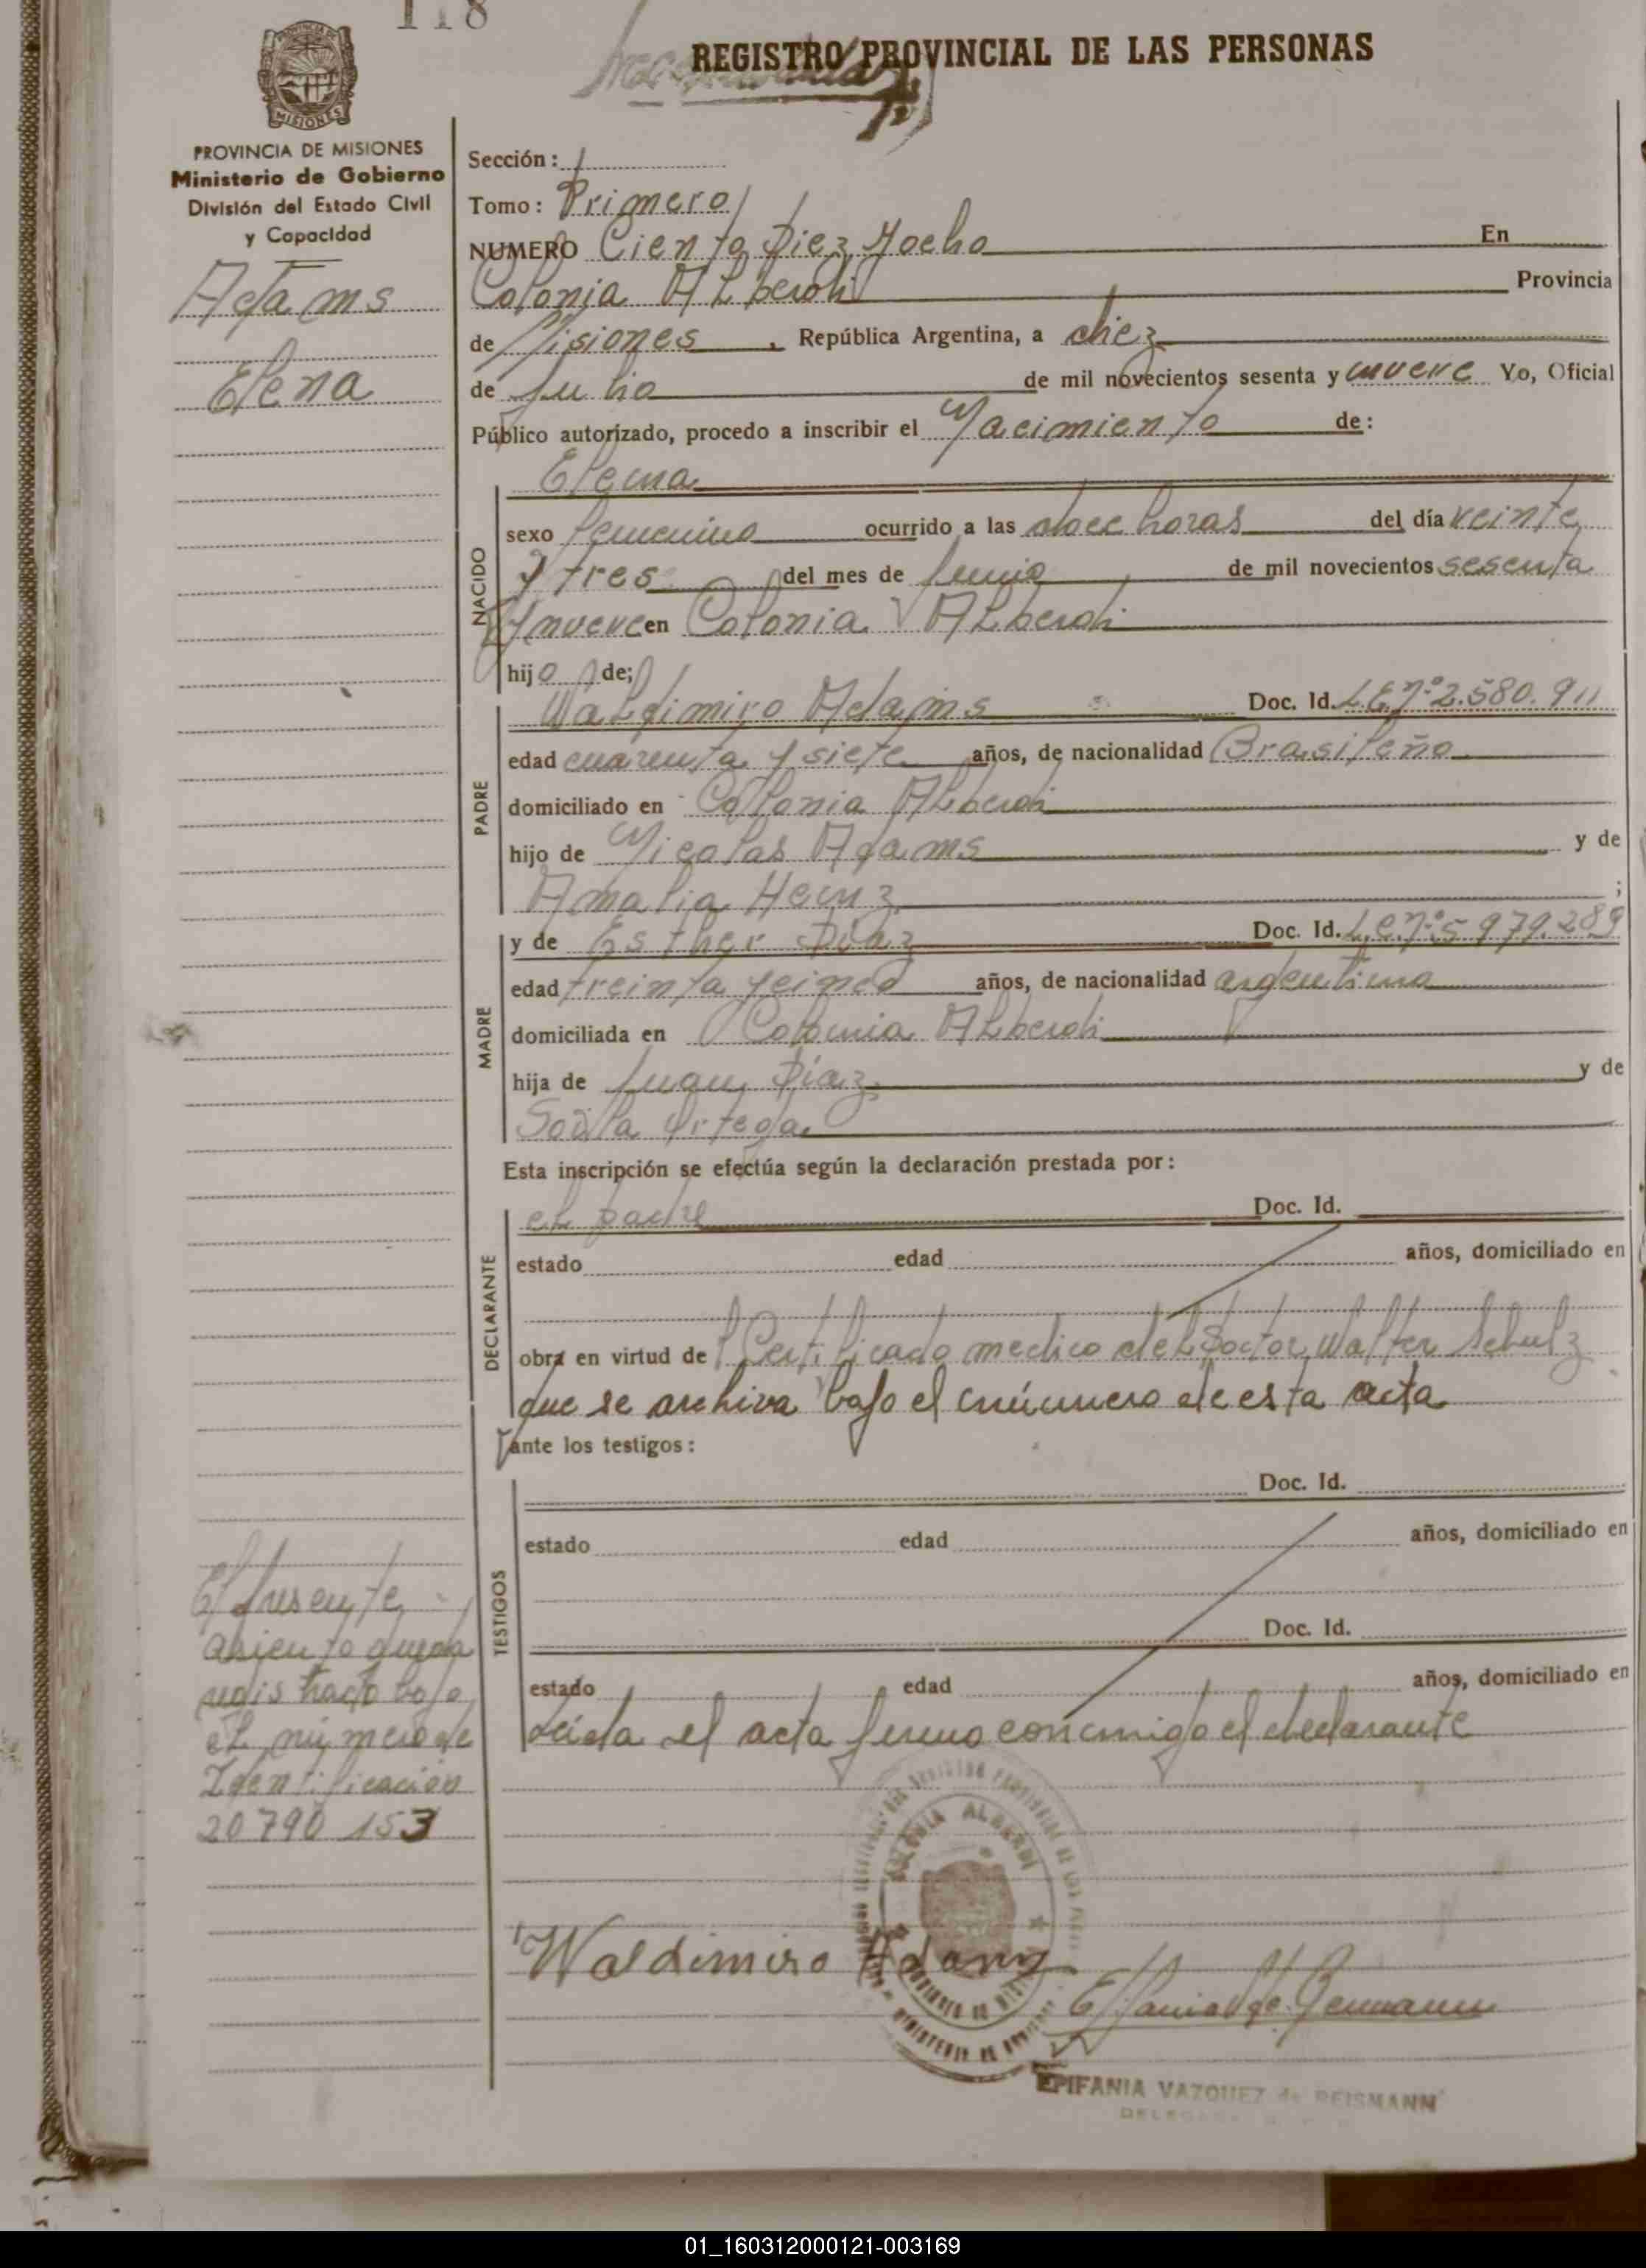 118
REGISTRO PROVINCIAL DE LAS PERSONAS
MISIONES
PROVINCIA DE MISIONES
Ministerio de Gobierno
División del Estado Civil
y Capacidad
Adams
Elena
Sección:
Tomo: Primero
NUMERO Ciento Diez Y ocho En
Colonia ALberdi Provincia
de Misiones, República Argentina, a diez
de Julio de mil novecientos sesenta y nueve Yo, Oficial
Público autorizado, procedo a inscribir el Nacimiento de:
NACIDO
Elena
sexo femenino ocurrido a las doce horas del día veinte
y tres del mes de Junio de mil novecientos sesenta
y nueve en Colonia ALberdi
hija de;
PADRE
Waldimiro Adams Doc. Id. L.E.Nº 2.580.911
edad cuarenta y siete años, de nacionalidad Brasileño
domiciliado en Colonia ALberdi
hijo de Nicolas Adams y de
Amalia ;
MADRE
y de Esther Díaz Doc. Id. L.C.Nº 5.979.289
edad treinta y cinco años, de nacionalidad argentina
domiciliada en Colonia ALberdi
hija de Juan Díaz y de
Ortega
Esta inscripción se efectúa según la declaración prestada por:
DECLARANTE
eL padre Doc. Id.
estado edad años, domiciliado en
obra en virtud de Certificado medico deL Doctor Walter Schulz
que se archiva bajo el número de esta acta
ante los testigos:
TESTIGOS
Doc. Id.
estado edad años, domiciliado en
Doc. Id.
estado edad años, domiciliado en
Leída el acta firma conmigo el declarante
El presente
asiento queda
registrado bajo
eL número de
Identificación
20790153
COLONIA ALBERDI
Waldimiro Adams
EPIFANIA VAZQUEZ de REISMANN
01_160312000121-003169